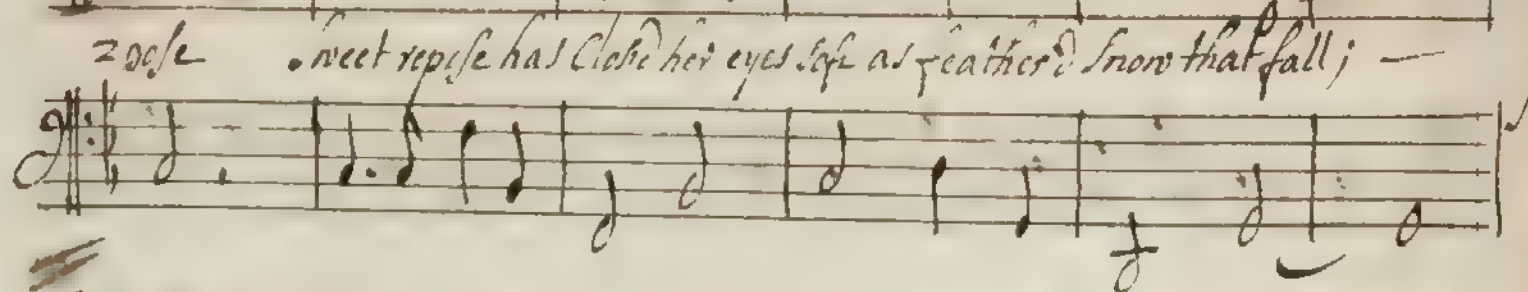 2 Dose sweet repose has Clos'd her eyes soft as feather'd Snow that fall; —